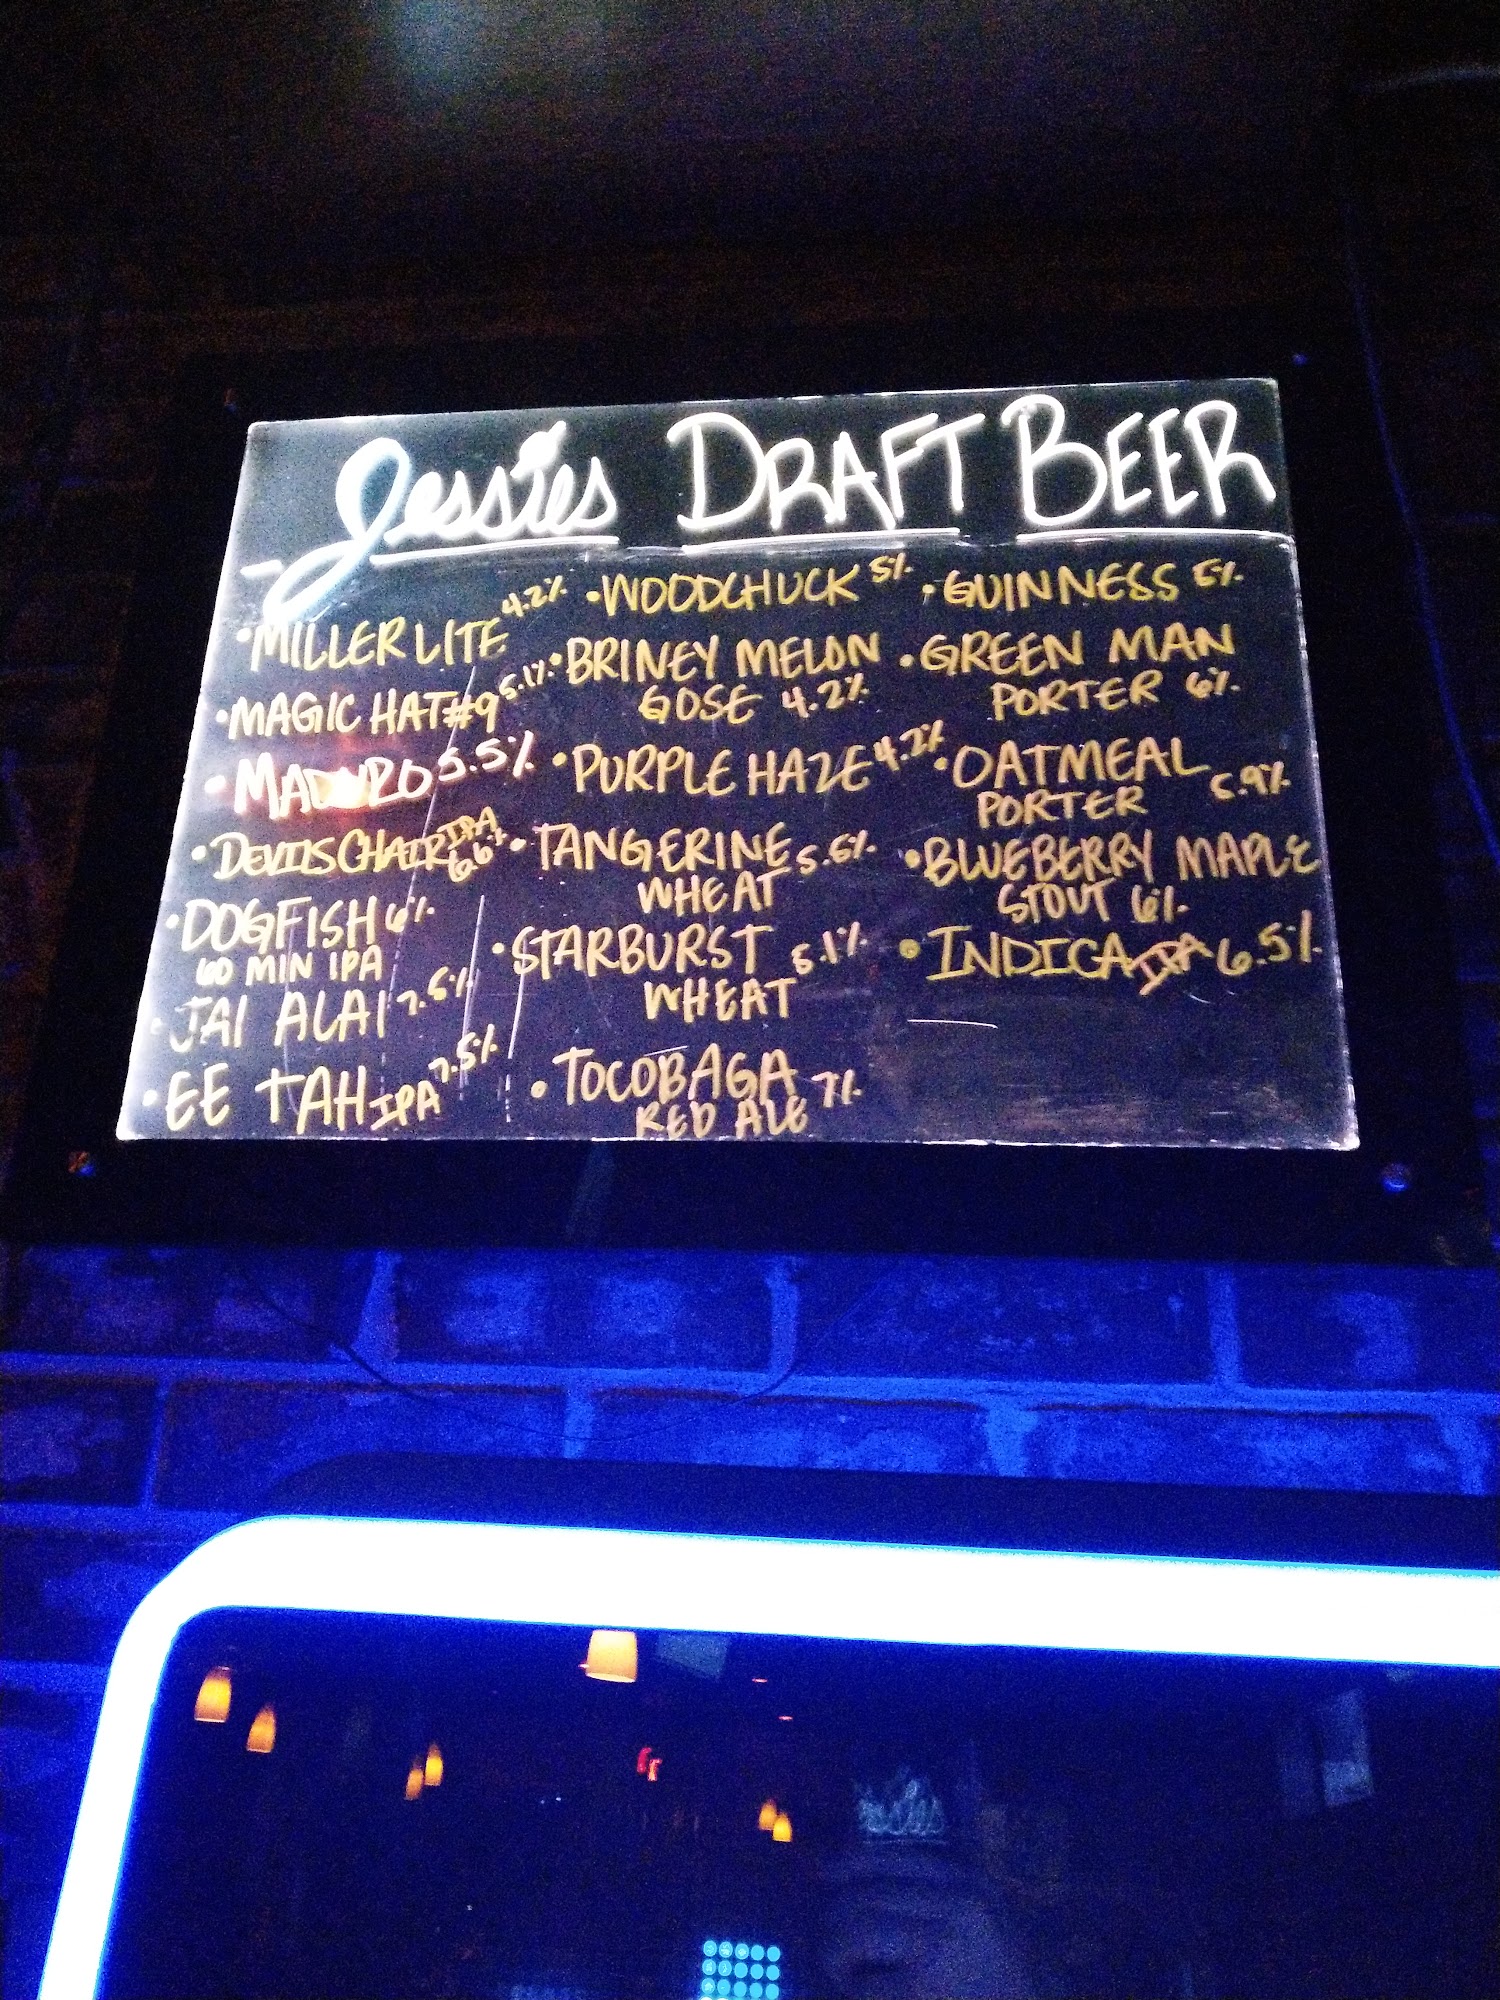 Jessies DRAFT BEER
• MILLER LITE 4.2%
• MAGIC HAT #9 5.1%
• MADURO 5.5%
• DEVILS CHAIR IPA 6.6%
• DOGFISH 6%
60 MIN IPA
• JAI ALAI 7.5%
• EE TAH IPA 7.5%
• WOODCHUCK 5%
• BRINEY MELON
GOSE 4.2%
• PURPLE HAZE 4.2%
• TANGERINE 5.5%
WHEAT
• STARBURST 5.1%
WHEAT
• TOCOBAGA 7%
RED ALE
• GUINNESS 5%
• GREEN MAN
PORTER 6%
• OATMEAL 5.9%
PORTER
• BLUEBERRY MAPLE
STOUT 6%
• INDICA IPA 6.5%